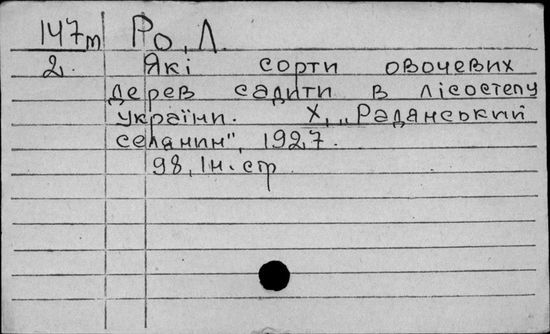 147т Ро, Л.
2. Які сорти овочевих
дерев садити в лісостепу
україни. Х, „Радянський
селянин", 1927.
98, Iн. стр